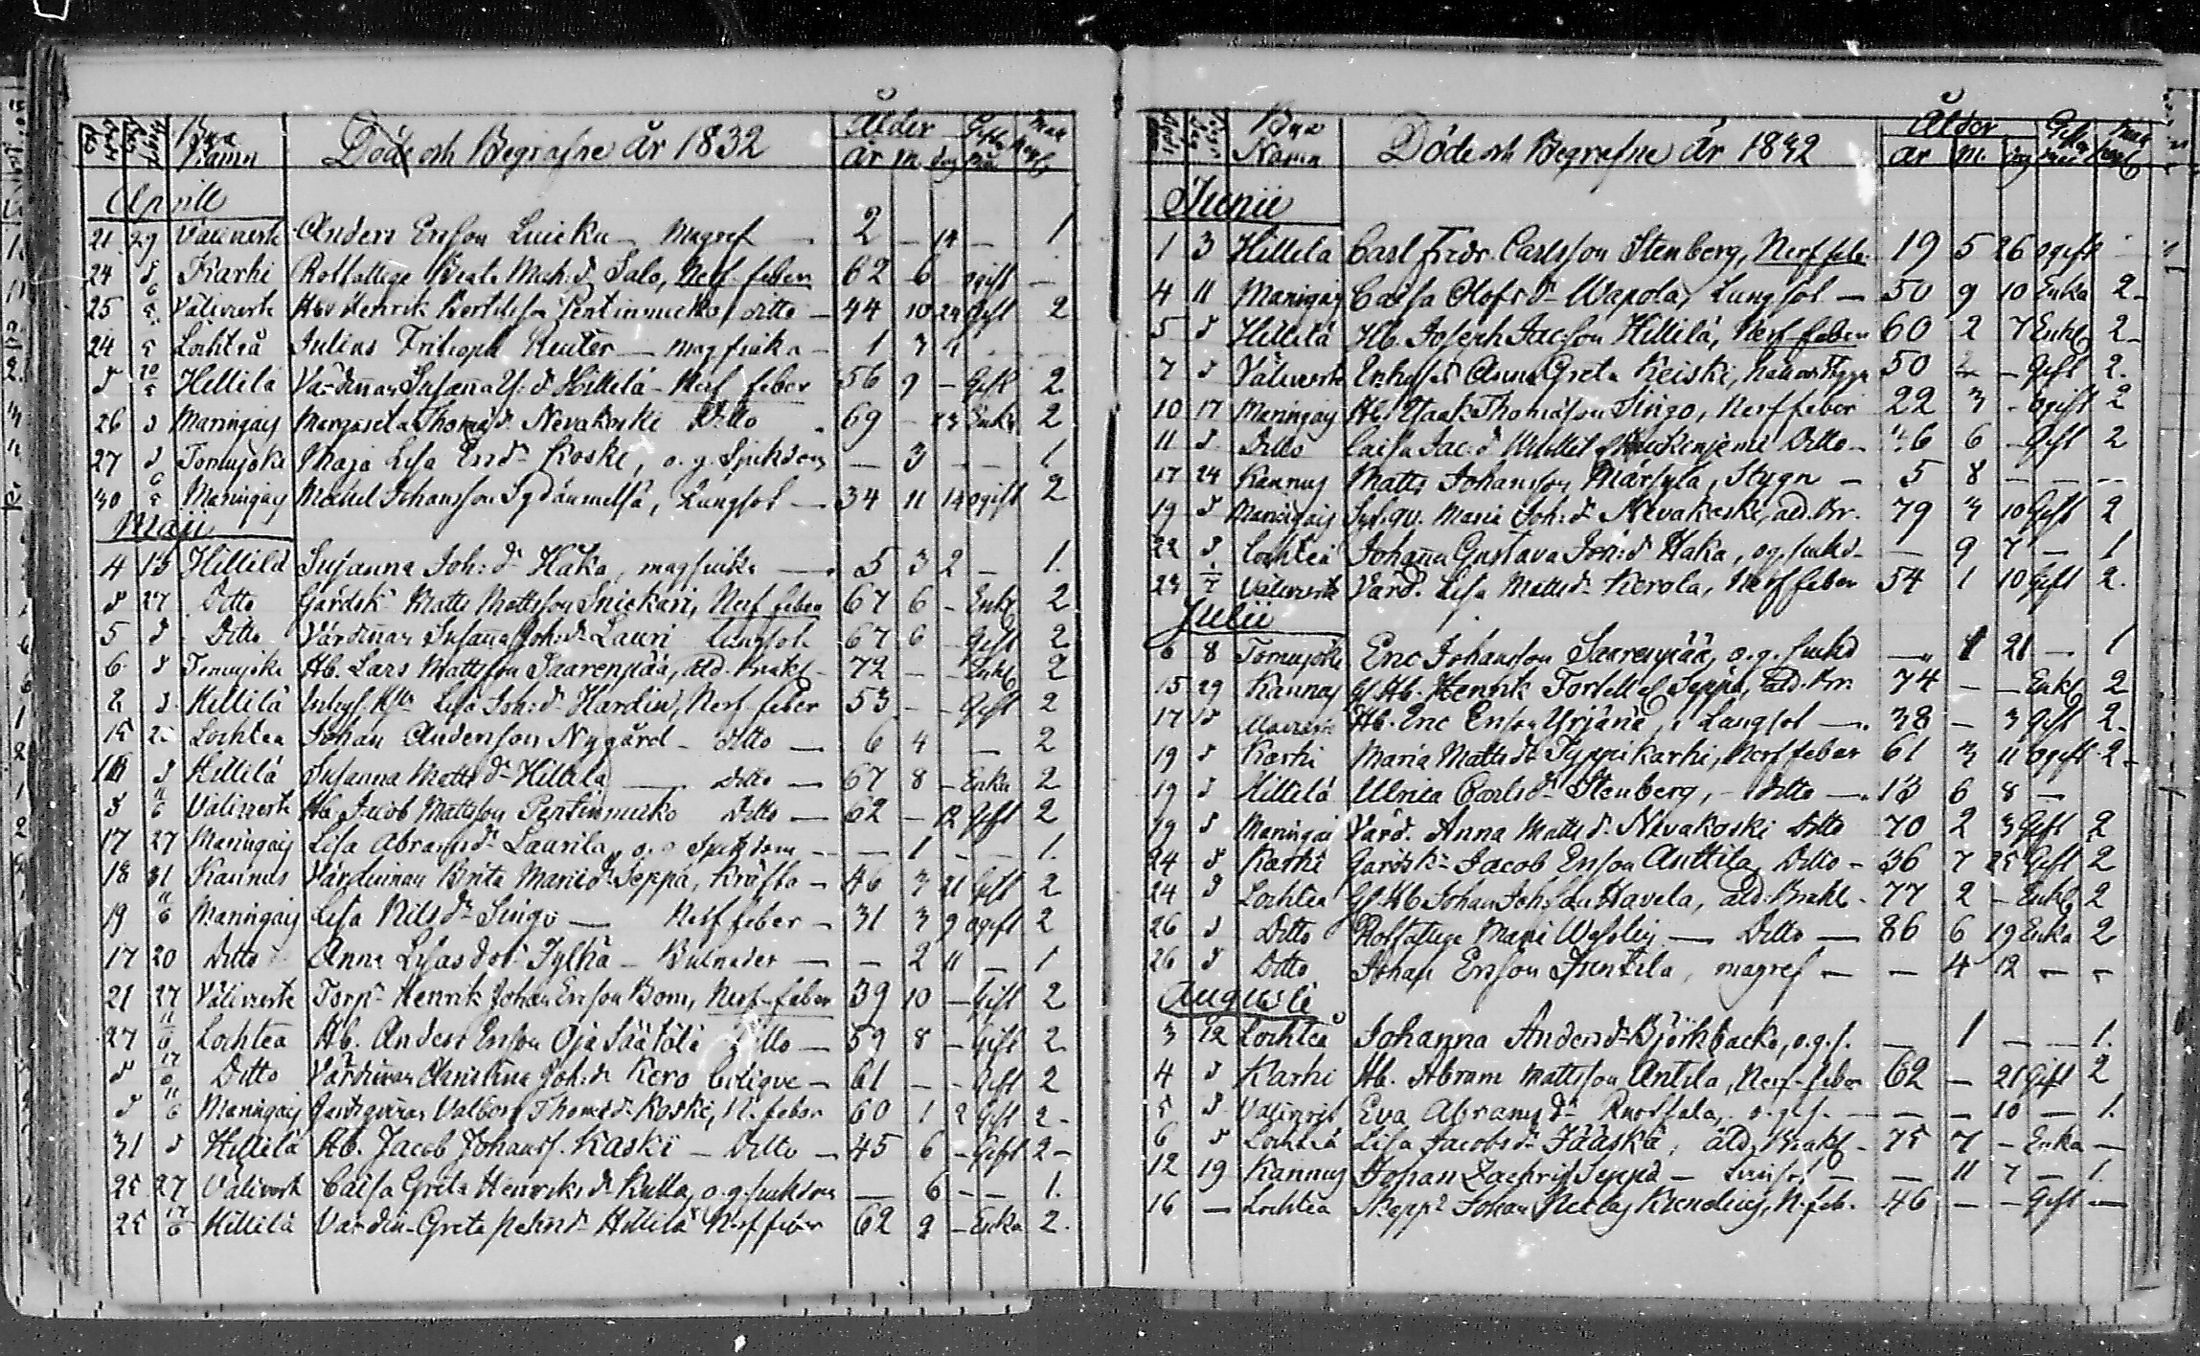 Bya Namn Döde och Begrafne år 1832 Ålder år m. dag
Aprill
21 29 Välivesk Anders Ersson Luicku Magref 2 - 14 - 1
24 d Karhi Rotfattige Beata Mich.dr Salo, Nerf feber 62 6 ogift -
25 Välivesk Henrik Pentinmicko ditto 44 10 24 Gift 2
24 Lochteå Julius Reuter magsiuka 1 3
d Hillilä Värdinnan Susanna Hillilä Nerf feber 56 9 - Gift 2
26 d Maringais Margareta Thomæd. Nevakoski Ditto 69 - Enka 2
27 d Tomujoki Maja Lisa Ersdr Koski, o. g. Sjukdom - 3 - - 1
30 Maringais Mickel Johansson Sydänmetsä, Lungsot 34 11 14 ogift 2
Maii
4 13 Hillilä Susanna Joh:dr Haka, magsiuka 5 3 2 - 1
d 27 Ditto Gårdsk. Matts Mattsson Snickari, Nerf feber 67 6 - Enkl 2
5 d Ditto Värdinnan Susanna Joh:dr Lauri Lungsot 67 6 - Gift 2
6 d Tomujoki Hb. Lars Mattsson Saarenpää, åld. brækl 72 - - Enkl 2
2 d Hillilä Lisa Joh:dr Hardin, Nerf feber 53 - - Gift 2
15 Lochteå Johan Andersson Nygård ditto 6 4 - 2
d Hillilä Susanna Mattsdr Hillilä Ditto 67 8 - Enka 2
d Välivesk Hb. Jacob Mattsson Pentinmicko Ditto 62 - 12 Gift 2
17 27 Maringais Lisa Abramsdr Laurila, o. g. Sjukdom - 1 - - 1.
18 31 Kannus Värdinnan Brita Seppä, Kräfta 46 3 21 Gift 2
19 Maringais Lisa Nilsdr Singo Nerf feber 31 3 9 ogift 2
17 20 Ditto Anna Jylhä Bulnader - 2 11 - 1
21 27 Välivesk Torp. Henrik Johan Ersson Bom, Nerf feber 39 10 - Gift 2
27 Lochteå Hb. Anders Ersson Oja Säätölä Ditto 59 8 - Gift 2
d Ditto Värdinnan Christina Joh:dr Kero Colique 61 - - Gift 2
d Maringais Valborg Thomædr Koski, N. feber 60 1 2 Gift 2
31 d Hillilä Hb. Jacob Johanss. Kaski Ditto 45 6 - Gift 2
25 27 Välivesk Caisa Greta Henriksdr Kulla, o. g. sjukdom - 6 - - 1.
25 Hillilä Värdin. Greta Hillilä Nerf feber 62 9 - Enka 2.
Bya Namn Döde och Begrafne år 1832 Ålder år m. dag
Junii
1 3 Hillilä Carl Fredr. Carlsson Stenberg, Nerf feb. 19 5 26 ogift
4 11 Maringais Caisa Olofsdr Wapola, Lungsot 50 9 10 Enka 2
5 d Hillilä Hb. Joseph Jacsson Hillilä, Nerf feber 60 2 7 Enkl 2
7 d Välivesk Anna Greta Keiski, 50 - Gift 2.
10 17 Maringais Isaak Thomasson Singo, Nerf feber 22 3 - ogift 2
11 d Ditto Caisa Jac.dr Ditto 6 - Gift 2
17 24 Kannus Matts Johansson Märsylä, Stygn 5 8 - - -
19 d Maringais Maria Joh:dr Nevakoski, åld. br. 79 3 10 Gift 2
22 d Lochteå Johanna Gustava Joh:dr Haka, og. sjukd - 9 7 - 1
23 Välivesk Värd. Lisa Mattsdr Kerola, Nerf feber 54 1 10 Gift 2.
Julii
6 8 Tomujoki Eric Johansson Saarenpää, o. g. siukd - 1 21 - 1
15 29 Kannus Gl. Hb. Henrik Seppä, åld. br. 74 - - Enkl 2
17 d Hb. Eric Ersson Yrjänä, Lungsot 38 - 3 Gift 2
19 d Karhi Maria Mattsdr Typpikarhi, Nerf feber 61 3 11 ogift 2
19 d Hillilä Ulrica Carlsdr Stenberg, ditto 13 6 8 -
19 d Maringais Värd. Anna Mattsdr Nevakoski Ditto 70 2 3 Gift 2
24 d Karhi Gårdsk. Jacob Ersson Anttila Ditto 36 7 25 Gift 2
24 d Lochteå Gl. Hb. Johan Johsson Havela, åld. Brækl. 77 2 - Enkl 2
26 d Ditto Rotfattige Wesslin Ditto 86 6 19 Enka 2
26 d Ditto Johan Ersson Juntila, magref - 4 12 - -
Augusti
3 12 Lochteå Johanna Andersdr Björkbacka, o.g.s. - 1 - - 1.
4 d Karhi Hb. Abram Mattsson Antila, Nerf feber 62 - 21 Gift 2
5 d Eva Abramsdr o.g.s. - - 10 - 1.
6 d Lochteå Lisa Jacobsdr Jääskä, åld. Brækl 75 7 - Enka -
12 19 Kannus Johan Zachriss Seppä - 11 7 - 1.
16 - Lochteå Johan Niclas N. feb. 46 - - Gift -